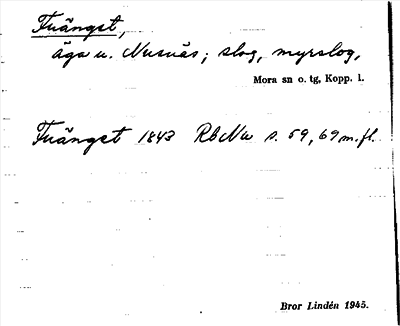 Fuängst,
äga u. Nusnäs; slog, myrslog,
Mora sn o. tg, Kopp. l.
Fuängst 1843 RbNu s. 59, 69 m. fl.
Bror Lindén 1945.